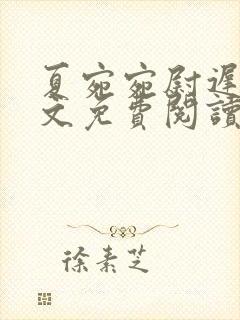 夏宛宛尉遲
文免費閱讀
徐素芝